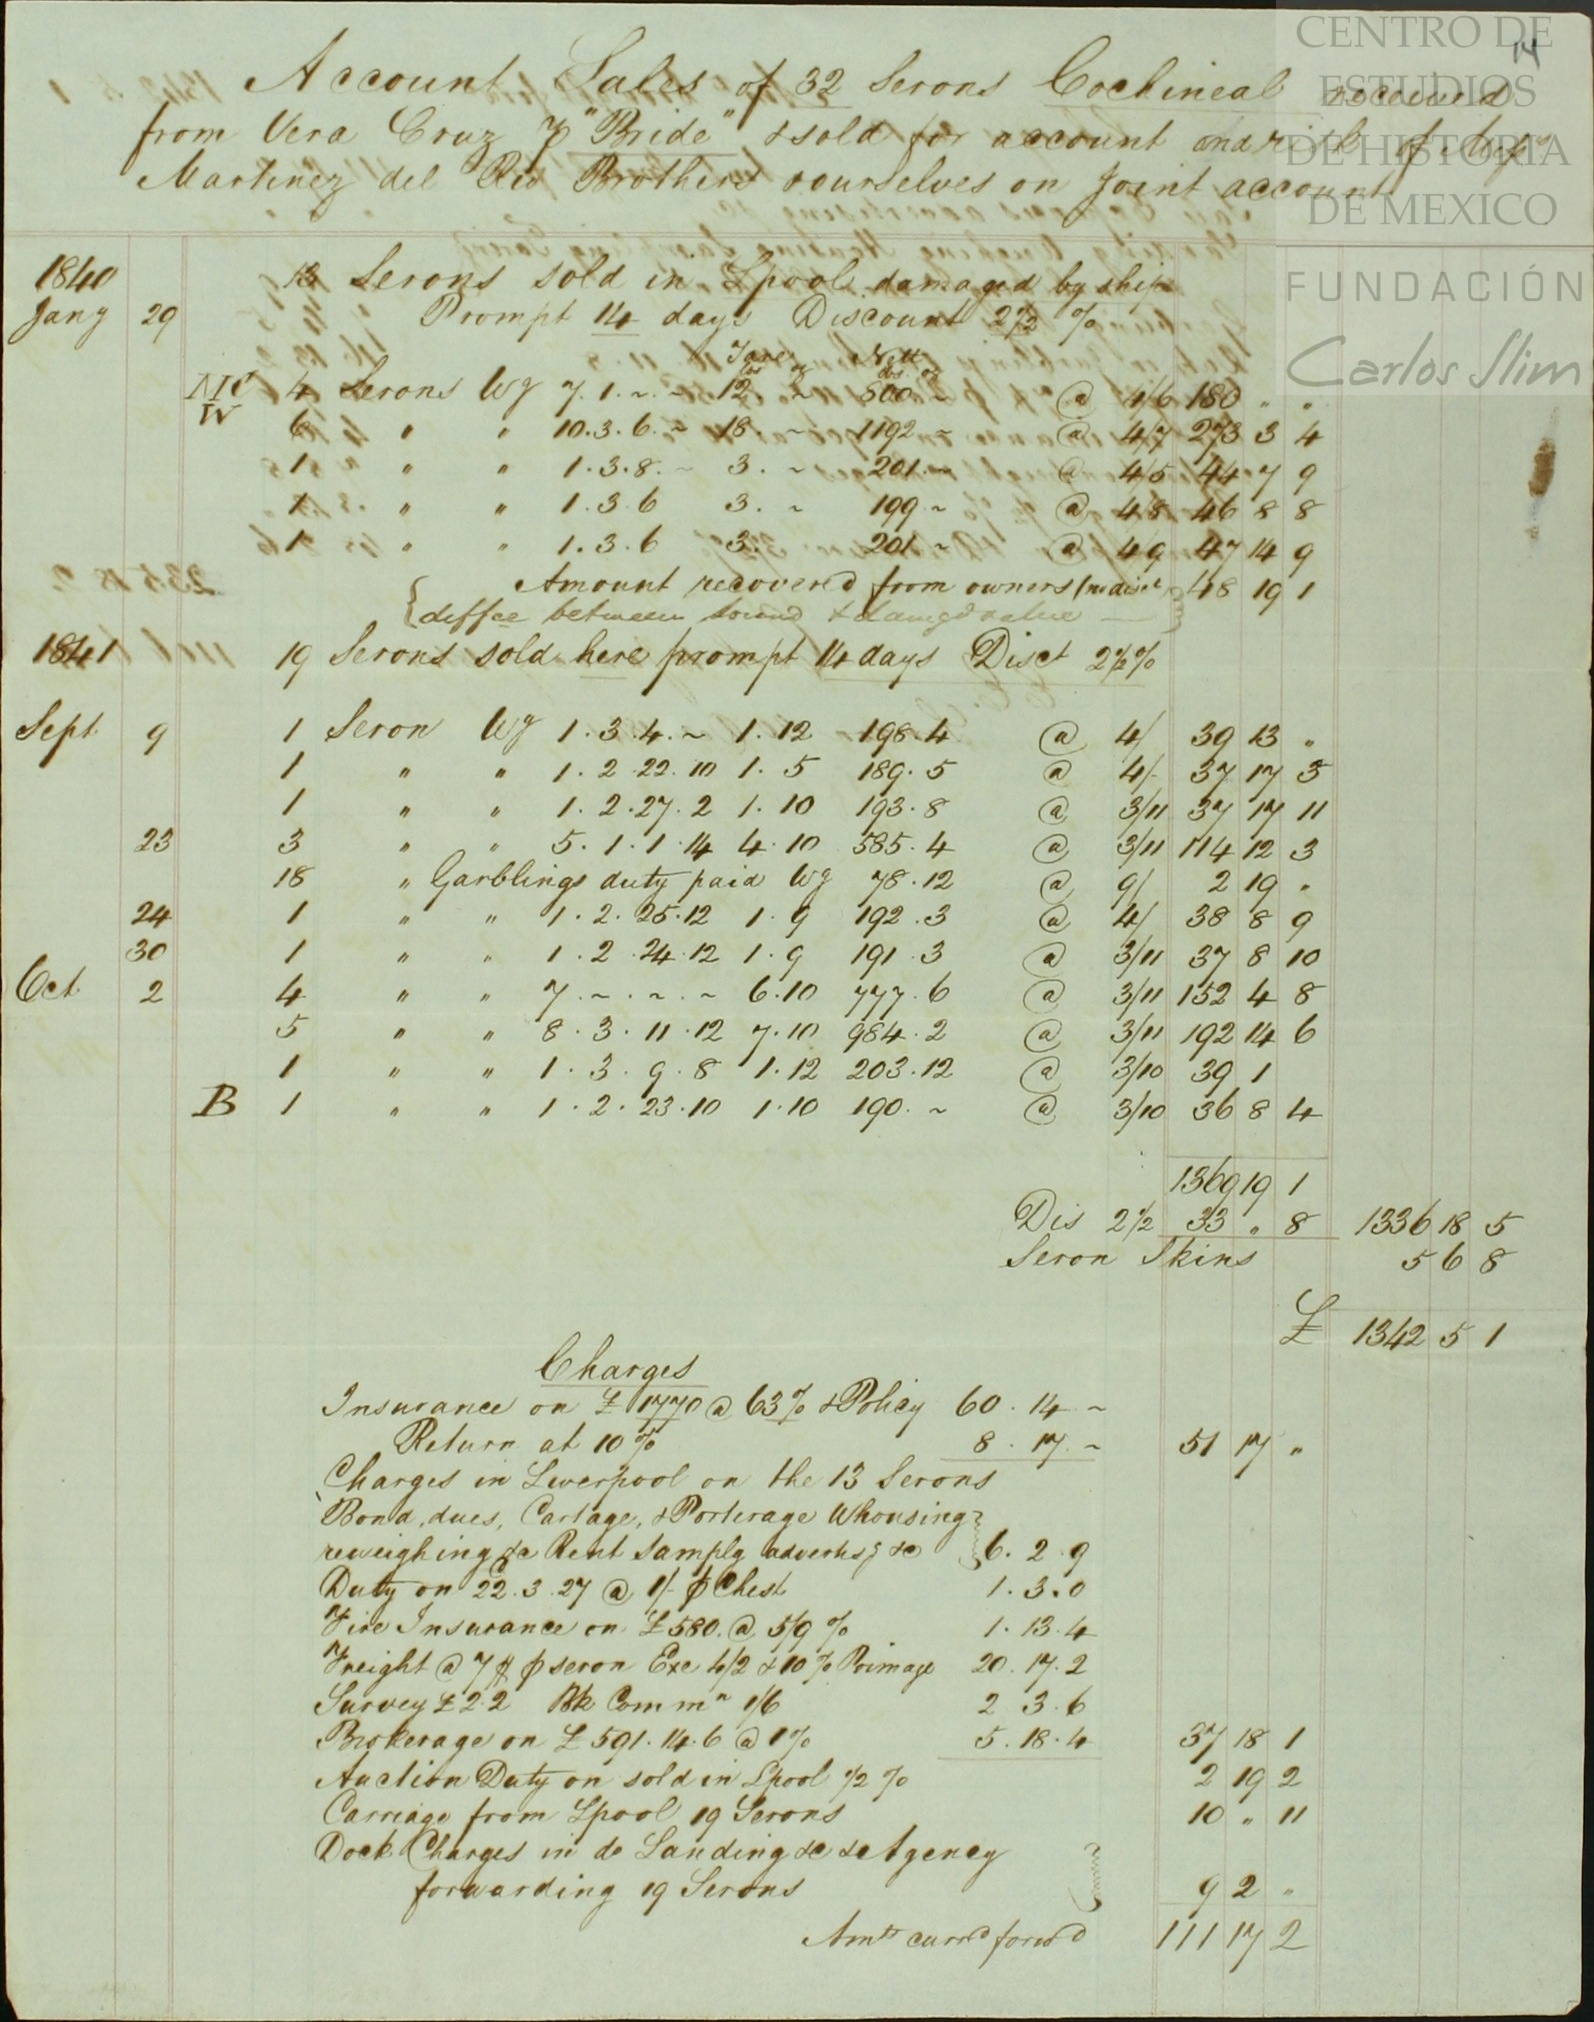 14
CENTRO DE
ESTUDIOS
DE HISTORIA
DE MEXICO
FUNDACIÓN
Carlos Slim
Account Sales of 32 Serons Cochineal received
from Vera Cruz p "Bride" & sold for account and risk of Mess
Martinez del Rio Brothers & ourselves on Joint account
1840 13 Serons sold in Lpool damaged by ship
Jany 29 Prompt 14 days Discount 2½ %
Tare Nett
lbs oz lbs oz
MC
W
4 Serons Wg 7.1.~.~ 12 ~ 800 ~ @ 4/6 180 " "
6 " " 10.3.6.~ 18. ~ 1192 ~ @ 4/7 273 3 4
1 " " 1.3.8.~ 3. ~ 201.~ @ 4/5 44 7 9
1 " " 1.3.6 3. ~ 199.~ @ 4/8 46 8 8
1 " " 1.3.6 3. 201 ~ @ 4/9 47 14 9
Amount recovered from owners (no disct 48 19 1
diffce between sound & damgd value
1841 19 Serons sold here prompt 14 days Disct 2½%
Sept 9 1 Seron Wg 1.3.4.~ 1.12 198.4 @ 4/ 39 13 "
1 " " 1.2.22.10 1.5 189.5 @ 4/- 37 17 3
1 " " 1.2.27.2 1.10 193.8 @ 3/11 37 17 11
23 3 " " 5.1.1.14 4.10 585.4 @ 3/11 114 12 3
18 " Garblings duty paid Wg 78.12 @ 9/ 2 19 "
24 1 " " 1.2.25.12 1.9 192.3 @ 4/ 38 8 9
30 1 " " 1.2.24.12 1.9 191.3 @ 3/11 37 8 10
Oct 2 4 " " 7.~.~.~ 6.10 777.6 @ 3/11 152 4 8
5 " " 8.3.11.12 7.10 984.2 @ 3/11 192 14 6
1 " " 1.3.9.8 1.12 203.12 @ 3/10 39 1
B 1 " " 1.2.23.10 1.10 190.~ @ 3/10 36 8 4
1369 19 1
Dis 2½ 33 " 8 1336 18 5
Seron Skins 5 6 8
£ 1342 5 1
Charges
Insurance on £1770 @ 63% & Policy 60.14 ~
Return at 10% 8.17.~ 51 17 "
Charges in Liverpool on the 13 Serons
Bond, dues, Cartage, & Porterage Whousing
reweighing &c Rent Samplg advertsg &c 6.2.9
Duty on 22.3.27 @ 1/- p Chest 1.3.0
Fire Insurance on £580. @ 5/9 % 1.13.4
Freight @ 7 $ p seron Exc 4/2 & 10% Primage 20.17.2
Survey £2.2 Bk Commn 1/6 2 3.6
Brokerage on £591.14.6 @ 1% 5.18.4 37 18 1
Auction Duty on sold in Lpool ½ % 2 19 2
Carriage from Lpool 19 Serons 10 " 11
Dock Charges in do Landing &c &c Agency
forwarding 19 Serons 9 2 "
Amt carrd forwd 111 17 2